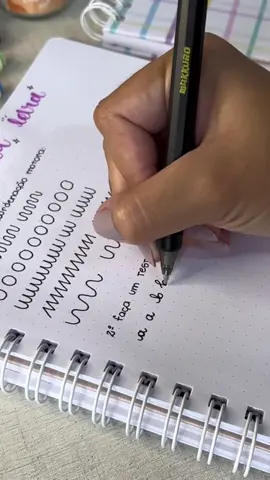 letra
coordenação motora:
2º faça um test
a a b b
MAKKURO